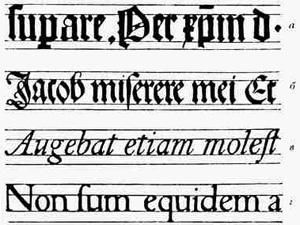 ſupare. Per xp̄m d. a
Jacob miſerere mei Et б
Augebat etiam moleſt в
Non ſum equidem a г